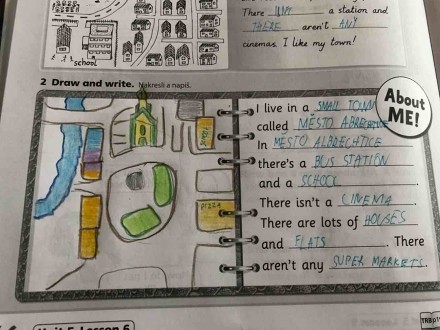 There ANY a station and
THERE aren't ANY
cinemas. I like my town!
school
2 Draw and write. Nakresli a napiš.
About ME!
I live in a SMALL TOWN
called MĚSTO ALBRECHTICE
In MĚSTO ALBRECHTICE
there's a BUS STATION
and a SCHOOL.
There isn't a CINEMA.
There are lots of HOUSES
and FLATS. There
aren't any SUPER MARKETS.
PIZZA
Unit 5 Lesson 6